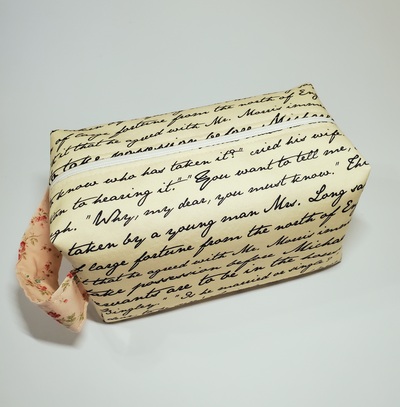 of large fortune from the north of Eng
it that he agreed with Mr. Morris imm
to take possession before Michae
know who has taken it?" cried his wife
on to hearing it." "You want to tell me,
gh. "Why, my dear, you must know." The
taken by a young man Mrs. Long sa
of large fortune from the north of En
it that he agreed with Mr. Morris imm
take possession before Michae
ervants are to be in the house
Bingley." "Is he married or single?"